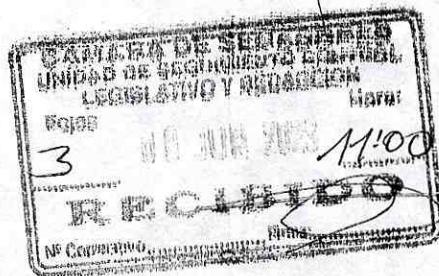 CAMARA DE SENADORES
UNIDAD DE SEGUIMIENTO
LEGISLATIVO Y REDACCION
Hojas Hora:
3 JUN 11:00
RECIBIDO
Nº Correlativo Firma